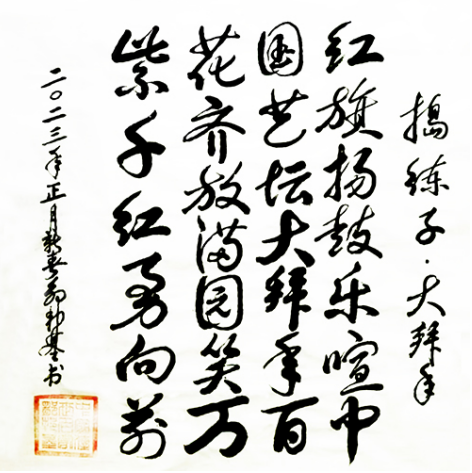 搗练子·大拜年
红旗扬鼓乐喧中
国艺坛大拜年百
花齐放满园笑万
紫千红勇向前
二〇二三年正月新春书